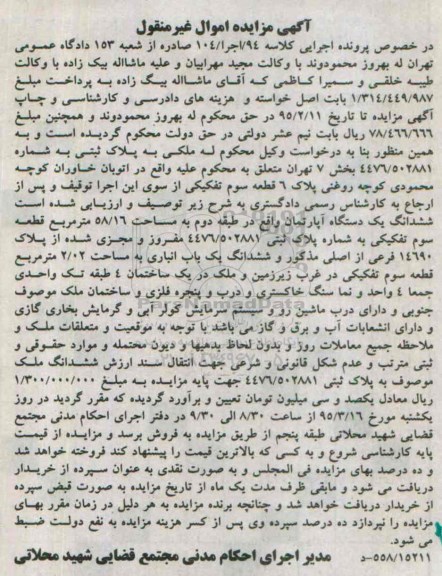 آگهی مزایده اموال غیرمنقول
در خصوص پرونده اجرایی کلاسه ۹۴/اجرا/۱۰۴ صادره از شعبه ۱۵۳ دادگاه عمومی
تهران له بهروز محمودوند با وکالت مجید مهرابیان و علیه ماشااله بیک زاده با وکالت
طیبه خلقی و سمیرا کاظمی که آقای ماشااله بیگ زاده به پرداخت مبلغ
۱/۳۱۴/۴۴۹/۹۸۷ بابت اصل خواسته و هزینه های دادرسی و کارشناسی و چاپ
آگهی مزایده تا تاریخ ۹۵/۲/۱۱ در حق محکوم له بهروز محمودوند و همچنین مبلغ
۷۸/۴۶۶/۶۶۶ ریال بابت نیم عشر دولتی در حق دولت محکوم گردیده است و به
همین منظور بنا به درخواست وکیل محکوم له ملکی به پلاک ثبتی به شماره
۴۴۷۶/۵۰۲۸۸۱ بخش ۷ تهران متعلق به محکوم علیه واقع در اتوبان خاوران کوچه
محمودی کوچه روغنی پلاک ۶ قطعه سوم تفکیکی از سوی این اجرا توقیف و پس از
ارجاع به کارشناس رسمی دادگستری به شرح زیر توصیف و ارزیابی شده است
ششدانگ یک دستگاه آپارتمان واقع در طبقه دوم به مساحت ۵۸/۱۶ مترمربع قطعه
سوم تفکیکی به شماره پلاک ثبتی ۴۴۷۶/۵۰۲۸۸۱ مفروز و مجزی شده از پلاک
۱۴۶۹۰ فرعی از اصلی مذکور و ششدانگ یک باب انباری به مساحت ۲/۰۲ مترمربع
قطعه سوم تفکیکی در غرب زیرزمین و ملک در یک ساختمان ۴ طبقه تک واحدی
جمعا ۴ واحد و نما سنگ خاکستری و درب و پنجره فلزی و ساختمان ملک موصوف
جنوبی و دارای درب ماشین رو و سیستم سرمایش کولر آبی و گرمایش بخاری گازی
و دارای انشعابات آب و برق و گاز می باشد با توجه به موقعیت و متعلقات ملک و
ملاحظه جمیع معاملات روز و بدون لحاظ بدهیها و دیون محتمله و موارد حقوقی و
ثبتی مترتب و عدم شکل قانونی و شرعی جهت انتقال سند ارزش ششدانگ ملک
موصوف به پلاک ثبتی ۴۴۷۶/۵۰۲۸۸۱ جهت پایه مزایده به مبلغ ۱/۳۰۰/۰۰۰/۰۰۰
ریال معادل یکصد و سی میلیون تومان تعیین و برآورد گردیده که مقرر گردید در روز
یکشنبه مورخ ۹۵/۳/۱۶ از ساعت ۸/۳۰ الی ۹/۳۰ در دفتر اجرای احکام مدنی مجتمع
قضایی شهید محلاتی طبقه پنجم از طریق مزایده به فروش برسد و مزایده از قیمت
پایه کارشناسی شروع و به کسی که بالاترین قیمت را پیشنهاد کند فروخته خواهد شد
و ده درصد بهای مزایده فی المجلس و به صورت نقدی به عنوان سپرده از خریدار
دریافت می شود و مابقی ظرف مدت یک ماه از تاریخ مزایده به صورت قبض سپرده
از خریدار دریافت خواهد شد و چنانچه برنده مزایده به هر دلیل در زمان مقرر بهای
مزایده را نپردازد ده درصد سپرده وی پس از کسر هزینه مزایده به نفع دولت ضبط
می شود.
۵۵۸/۱۵۲۱۱-د مدیر اجرای احکام مدنی مجتمع قضایی شهید محلاتی